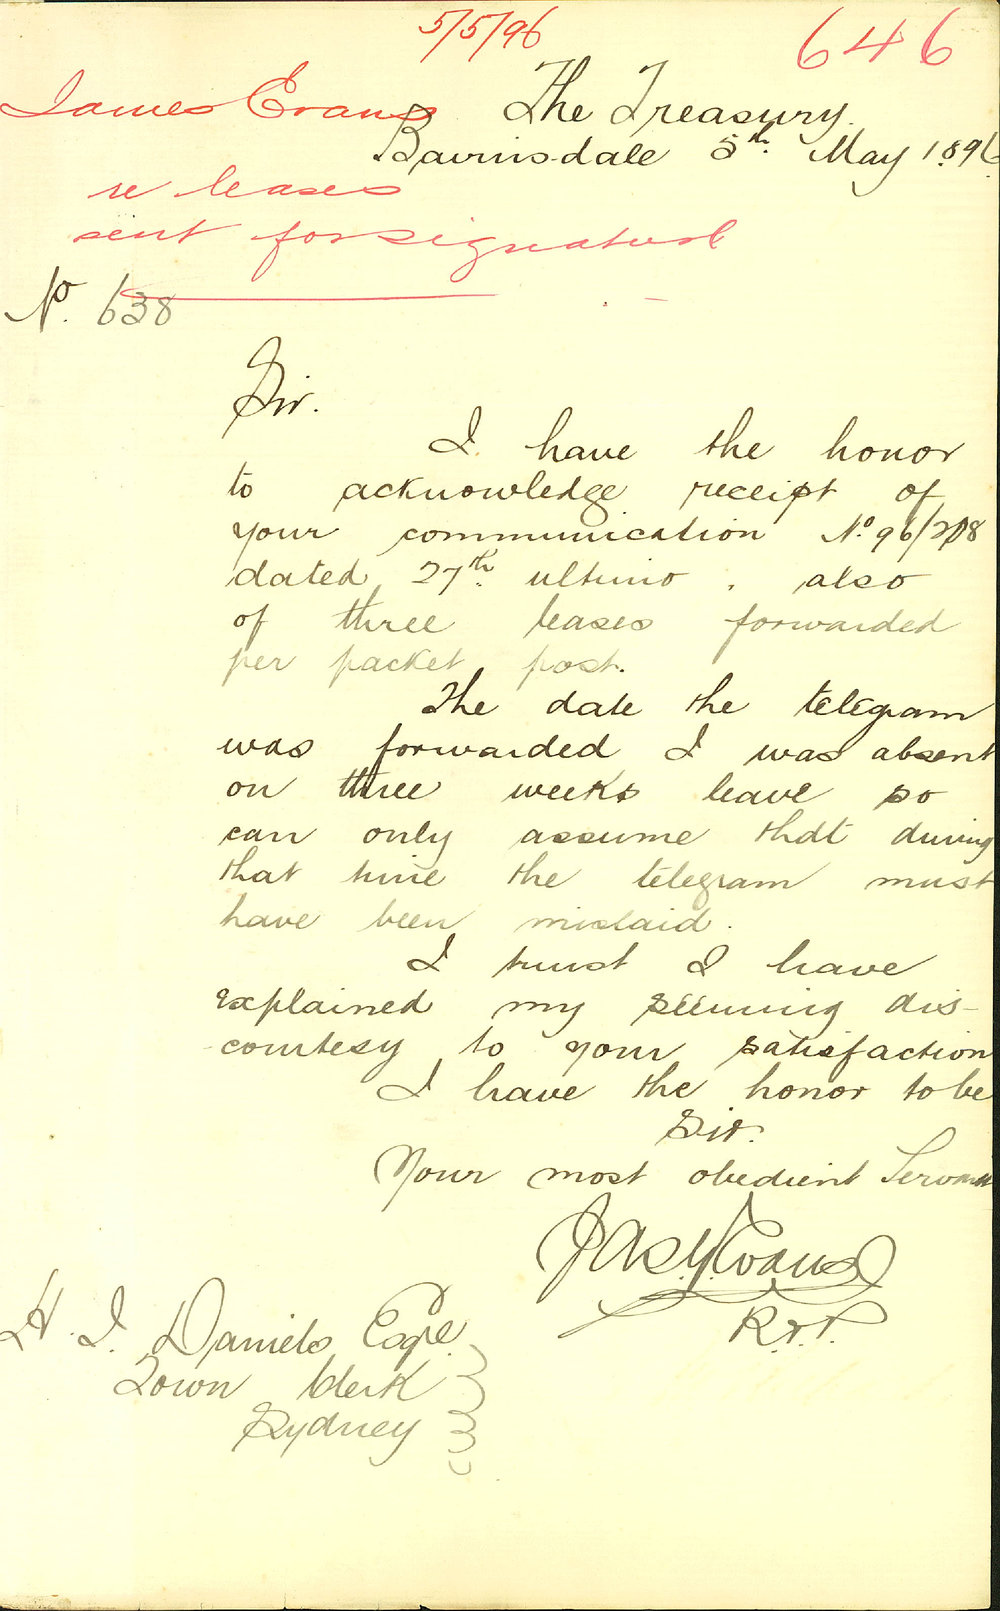 5/5/96
646
James Evans
The Treasury.
Bairnsdale 5th. May 1896.
re leases
sent for signature
No. 638
Sir.
I have the honor
to acknowledge receipt of
your communication No. 96/
dated 27th. ultimo . also
of three leases forwarded
per packet post.
The date the telegram
was forwarded I was absent
on three weeks leave so
can only assume that during
that time the telegram must
have been mislaid.
I trust I have
explained my seeming dis-
courtesy to your satisfaction
I have the honor to be
Sir.
Your most obedient Servant
Jas. Evans
R. & P.
H. I. Daniels Esqre.
Town Clerk
Sydney